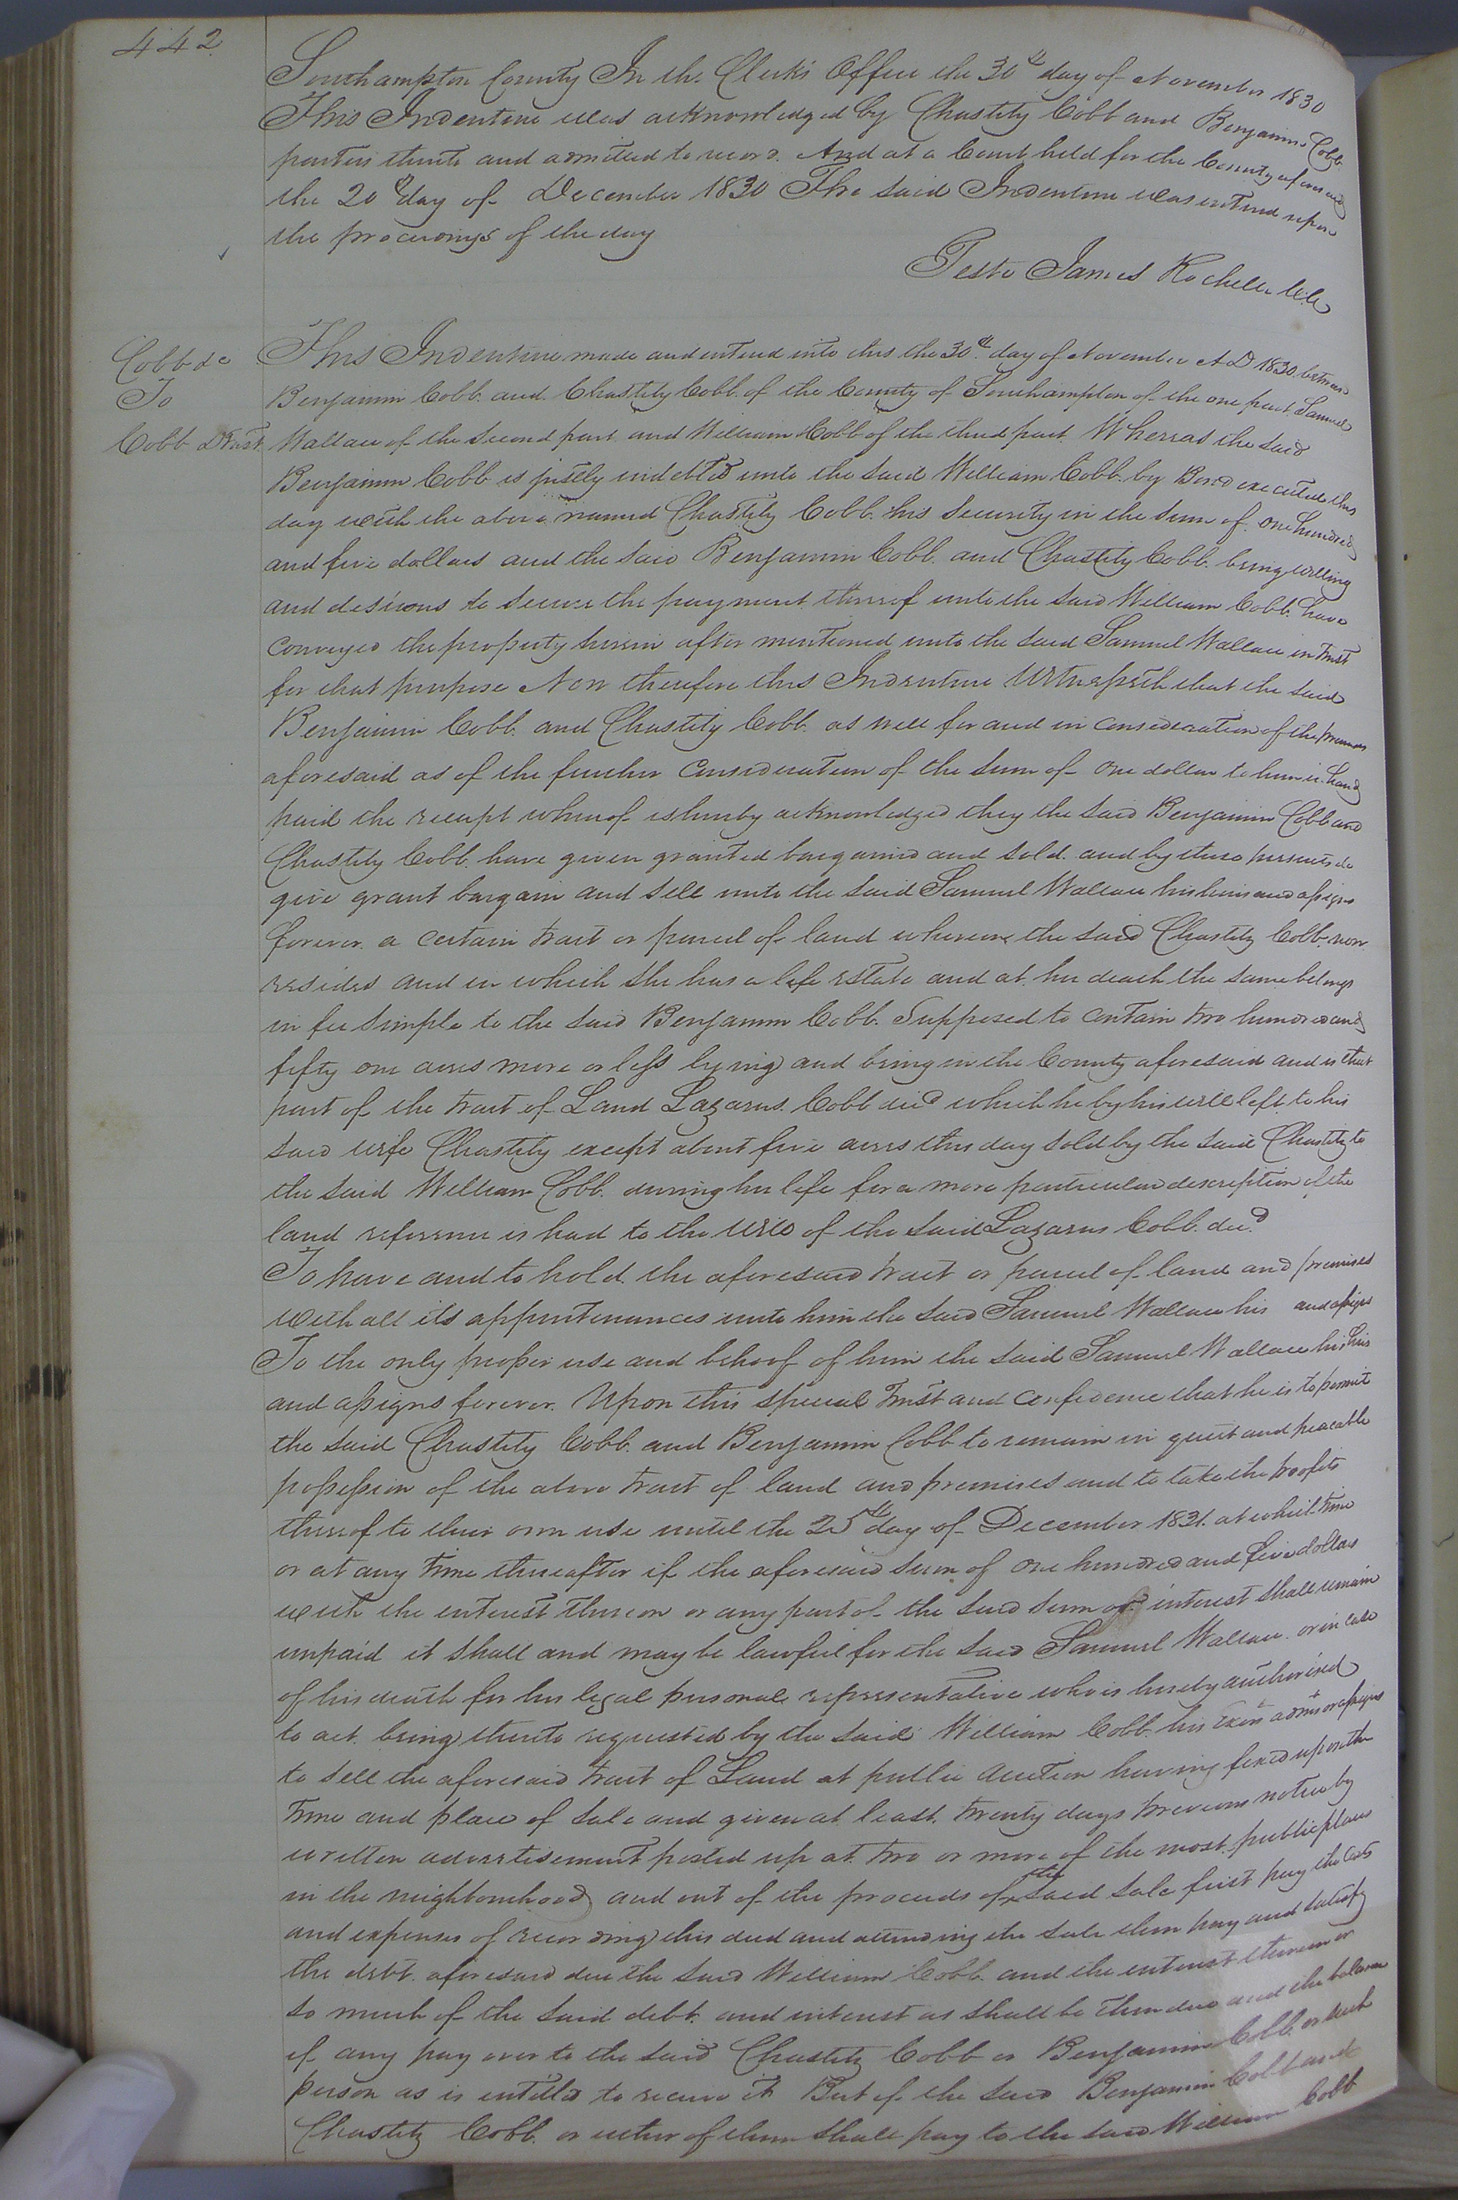 442
Southampton County In the Clerks Office the 30th day of November 1830
This Indenture was acknowledged by Chastity Cobb and Benjamin Cobb
parties thereto and admitted to record. And at a Court held for the County aforesaid
the 20th day of December 1830 The said Indenture was entered upon
the proceedings of the day
Teste James Rochelle C.C.
Cobb &c
To
Cobb DTrust
This Indenture made and entered into this the 30th day of November AD 1830. between
Benjamin Cobb. and Chastity Cobb. of the County of Southampton of the one part Samuel
Wallace of the Second part and William Cobb of the third part. Whereas the said
Benjamin Cobb is justly indebted unto the said William Cobb. by Bond executed this
day with the above named Chastity Cobb. his Security in the sum of one hundred
and five dollars and the said Benjamin Cobb. and Chastity Cobb. being willing
and desirous to secure the payment thereof unto the said William Cobb. have
conveyed the property herein after mentioned unto the said Samuel Wallace in trust
for that purpose Now therefore this Indenture Witnesseth that the said
Benjamin Cobb. and Chastity Cobb. as well for and in consideration of the premises
aforesaid as of the further consideration of the sum of one dollar to him in hand
paid the receipt whereof is hereby acknowledged they the said Benjamin Cobb and
Chastity Cobb. have given granted bargained and sold. and by these presents do
give grant bargain and sell unto the said Samuel Wallace his heirs and assigns
forever. a certain tract or parcel of land whereon the said Chastity Cobb now
resides and in which she has a life estate and at her death the same belongs
in fee simple to the said Benjamin Cobb. Supposed to contain two hundred and
fifty one acres more or less lying and being in the County aforesaid and is that
part of the tract of Land Lazarus Cobb died which he by his will left to his
said wife Chastity except about five acres this day sold by the said Chastity to
the said William Cobb. during her life for a more particular description of the
land reference is had to the will of the said Lazarus Cobb. decd.
To have and to hold the aforesaid tract or parcel of land and premises
with all its appurtenances unto him the said Samuel Wallace his and assigns
To the only proper use and behoof of him the said Samuel Wallace his heirs
and assigns forever. Upon this special trust and confidence that he is to permit
the said Chastity Cobb. and Benjamin Cobb to remain in quiet and peacable
possession of the above tract of land and premises and to take the proofits
thereof to their own use until the 25th day of December 1831. at which time
or at any time thereafter if the aforesaid sum of one hundred and five dollars
with the interest thereon or any part of the said sum or interest shall remain
unpaid it shall and may be lawful for the said Samuel Wallace. or in case
of his death for his legal personal representative who is hereby authorised
to act. being thereto requested by the said William Cobb his Exors admrs or assigns
to sell the aforesaid tract of Land at public auction having fixed upon the
time and place of sale and given at least. twenty days previous notice by
written advertisement posted up at two or more of the most public places
in the neighbourhood and out of the proceeds of the said sale first pay the costs
and expenses of recording this deed and attending the sale then pay and satisfy
the debt aforesaid due the said William Cobb and the interest thereon or
so much of the said debt. and interest as shall be then due and the balance
if any pay over to the said Chastity Cobb or Benjamin Cobb. or such
person as is entitled to receive it But if the said Benjamin Cobb and
Chastity Cobb. or either of them shall pay to the said William Cobb